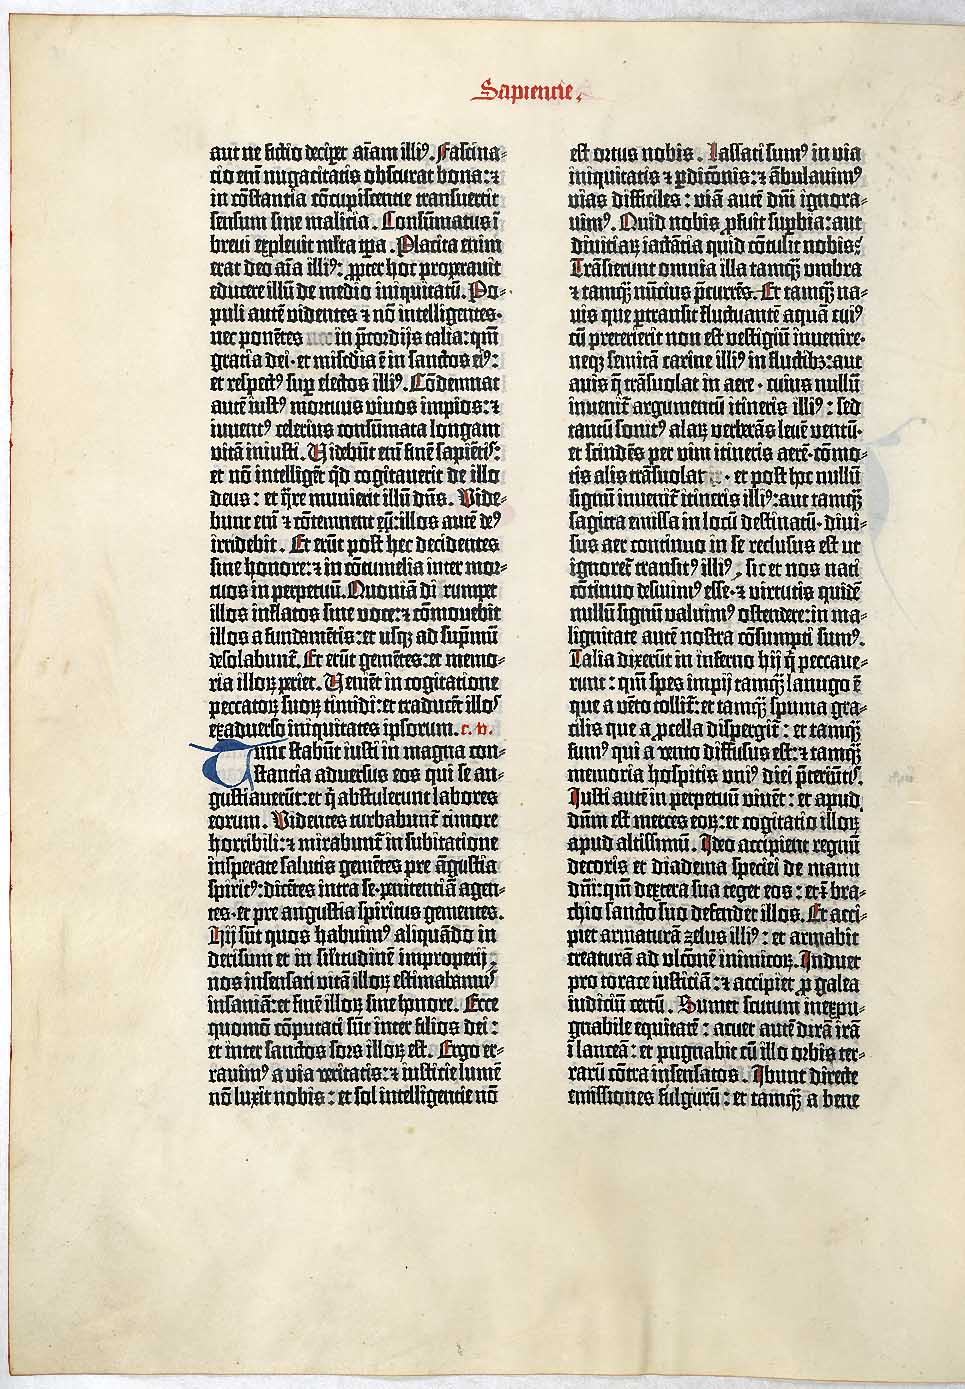 Sapientie.
aut ne fictio deciper̄ aīam illiꝰ. Fascina-
tio enī nugacitatis obscurat bona: ⁊
in cōstantia cōcupiscentie transuertit
sensum sine malicia. Consūmatus ī
breui expleuit tp̄ra m̄lta. Placita enim
erat deo aīa illiꝰ: ꝓpter hoc properauit
educere illū de medio iniquitatū. Po-
puli autē videntes ⁊ nō intelligentes.
nec ponētes in p̄cordijs talia: qm̄
gratia dei. et misc̄dia ē in sanctos eiꝰ:
et respectꝰ suꝑ electos illiꝰ. Cōdemnat
autē iustꝰ mortuus viuos impios: ⁊
iuuentꝰ celerius consūmata longam
vitā iniusti. Videbūt enī finē sapiētis:
et nō intelligēt qͥd cogitauerit de illo
deus: et qͣre munierit illū dn̄s. Vide-
bunt enī ⁊ cōtemnent eū: illos autē deꝰ
irridebit. Et erūt post hec decidentes
sine honore: ⁊ in cōtumelia inter mor-
tuos in perpetuū. Quoniā dirumpet
illos inflatos sine voce: ⁊ cōmouebit
illos a fundamētis: et usqꝫ ad supͤmū
desolabunt̄. Et erūt gemētes: et memo-
ria illoꝝ periet. Veniēt in cogitatione
peccatoꝝ suoꝝ timidi: et traducēt illos
exaduerso iniquitates ipsorum. c. v.
Tunc stabūt iusti in magna con-
stantia aduersus eos qui se an-
gustiauerūt: et qͥ abstulerunt labores
eorum. Videntes turbabunt̄ timore
horribili: ⁊ mirabunt̄ in subitatione
insperate salutis gemētes pre āgustia
spiritꝰ: dicētes intra se. penitentiā agen-
tes. et pre angustia spiritus gementes.
Hij sūt quos habuimꝰ aliquādo in
derisum et in sil̄itudinē improperij.
nos insensati vitā illoꝝ estimabamꝰ
insaniā: et finē illoꝝ sine honore. Ecce
quomō cōputati sūt inter filios dei:
et inter sanctos sors illoꝝ est. Ergo er-
rauimꝰ a via veritatis: ⁊ iusticie lumē
nō luxit nobis: et sol intelligentie nō
est ortus nobis. Lassati sumꝰ in via
iniquitatis ⁊ ꝑditōnis: ⁊ ābulauimꝰ
vias difficiles: viā autē dn̄i ignora-
uimꝰ. Quid nobis ꝓfuit suꝑbia: aut
diuitiaꝝ iactātia quid cōtulit nobis?
Trāsierunt omnia illa tamqͣꝫ vmbra
⁊ tamqͣꝫ nūcius p̄currēs. Et tamqͣꝫ na-
uis que ꝑtransit fluctuantē aquā cuiꝰ
cū preterierit non est vestigiū inuenire.
neqꝫ semitā carine illiꝰ in fluctibꝫ: aut
auis q̄ trāsuolat in aere. cuius nullū
inuenit̄ argumentū itineris illiꝰ: sed
tantū sonitꝰ alaꝝ verberās leuē ventū.
et scindēs per vim itineris aerē. cōmo-
tis alis trāsuolat. et post hoc nullū
signū inuenit̄ itineris illiꝰ: aut tamqͣꝫ
sagitta emissa in locū destinatū. diui-
sus aer continuo in se reclusus est ut
ignoret̄ transitꝰ illiꝰ, sic et nos nati
cōtinuo desiuimꝰ esse. ⁊ virtutis quidē
nullū signū valuimꝰ ostendere: in ma-
lignitate autē nostra cōsumpti sumꝰ.
Talia dixerūt in inferno hij qͥ peccaue-
runt: qm̄ spes impij tamqͣꝫ lanugo ē
que a vēto tollit̄: et tamqͣꝫ spuma gra-
cilis que a ꝓcella dispergit̄: et tamqͣꝫ
fumꝰ qui a vento diffusus est: ⁊ tamqͣꝫ
memoria hospitis vniꝰ diei p̄tereūtis.
Justi autē in perpetuū viuēt: et apud
dn̄m est merces eoꝝ: et cogitatio illoꝝ
apud altissimū. Ideo accipient regnū
decoris et diadema speciei de manu
dn̄i: qm̄ dextera sua teget eos: et bra-
chio sancto suo defendet illos. Et acci-
piet armaturā zelus illiꝰ: et armabit
creaturā ad vltōnē inimicoꝝ. Induet
pro torace iusticiā: ⁊ accipiet ꝓ galea
iudiciū certū. Sumet scutum inexpu-
gnabile equitatē: acuet autē dirā irā
ī lanceā: et pugnabit cū illo orbis ter-
rarū cōtra insensatos. Ibunt directe
emissiones fulgurū: et tamqͣꝫ a bene